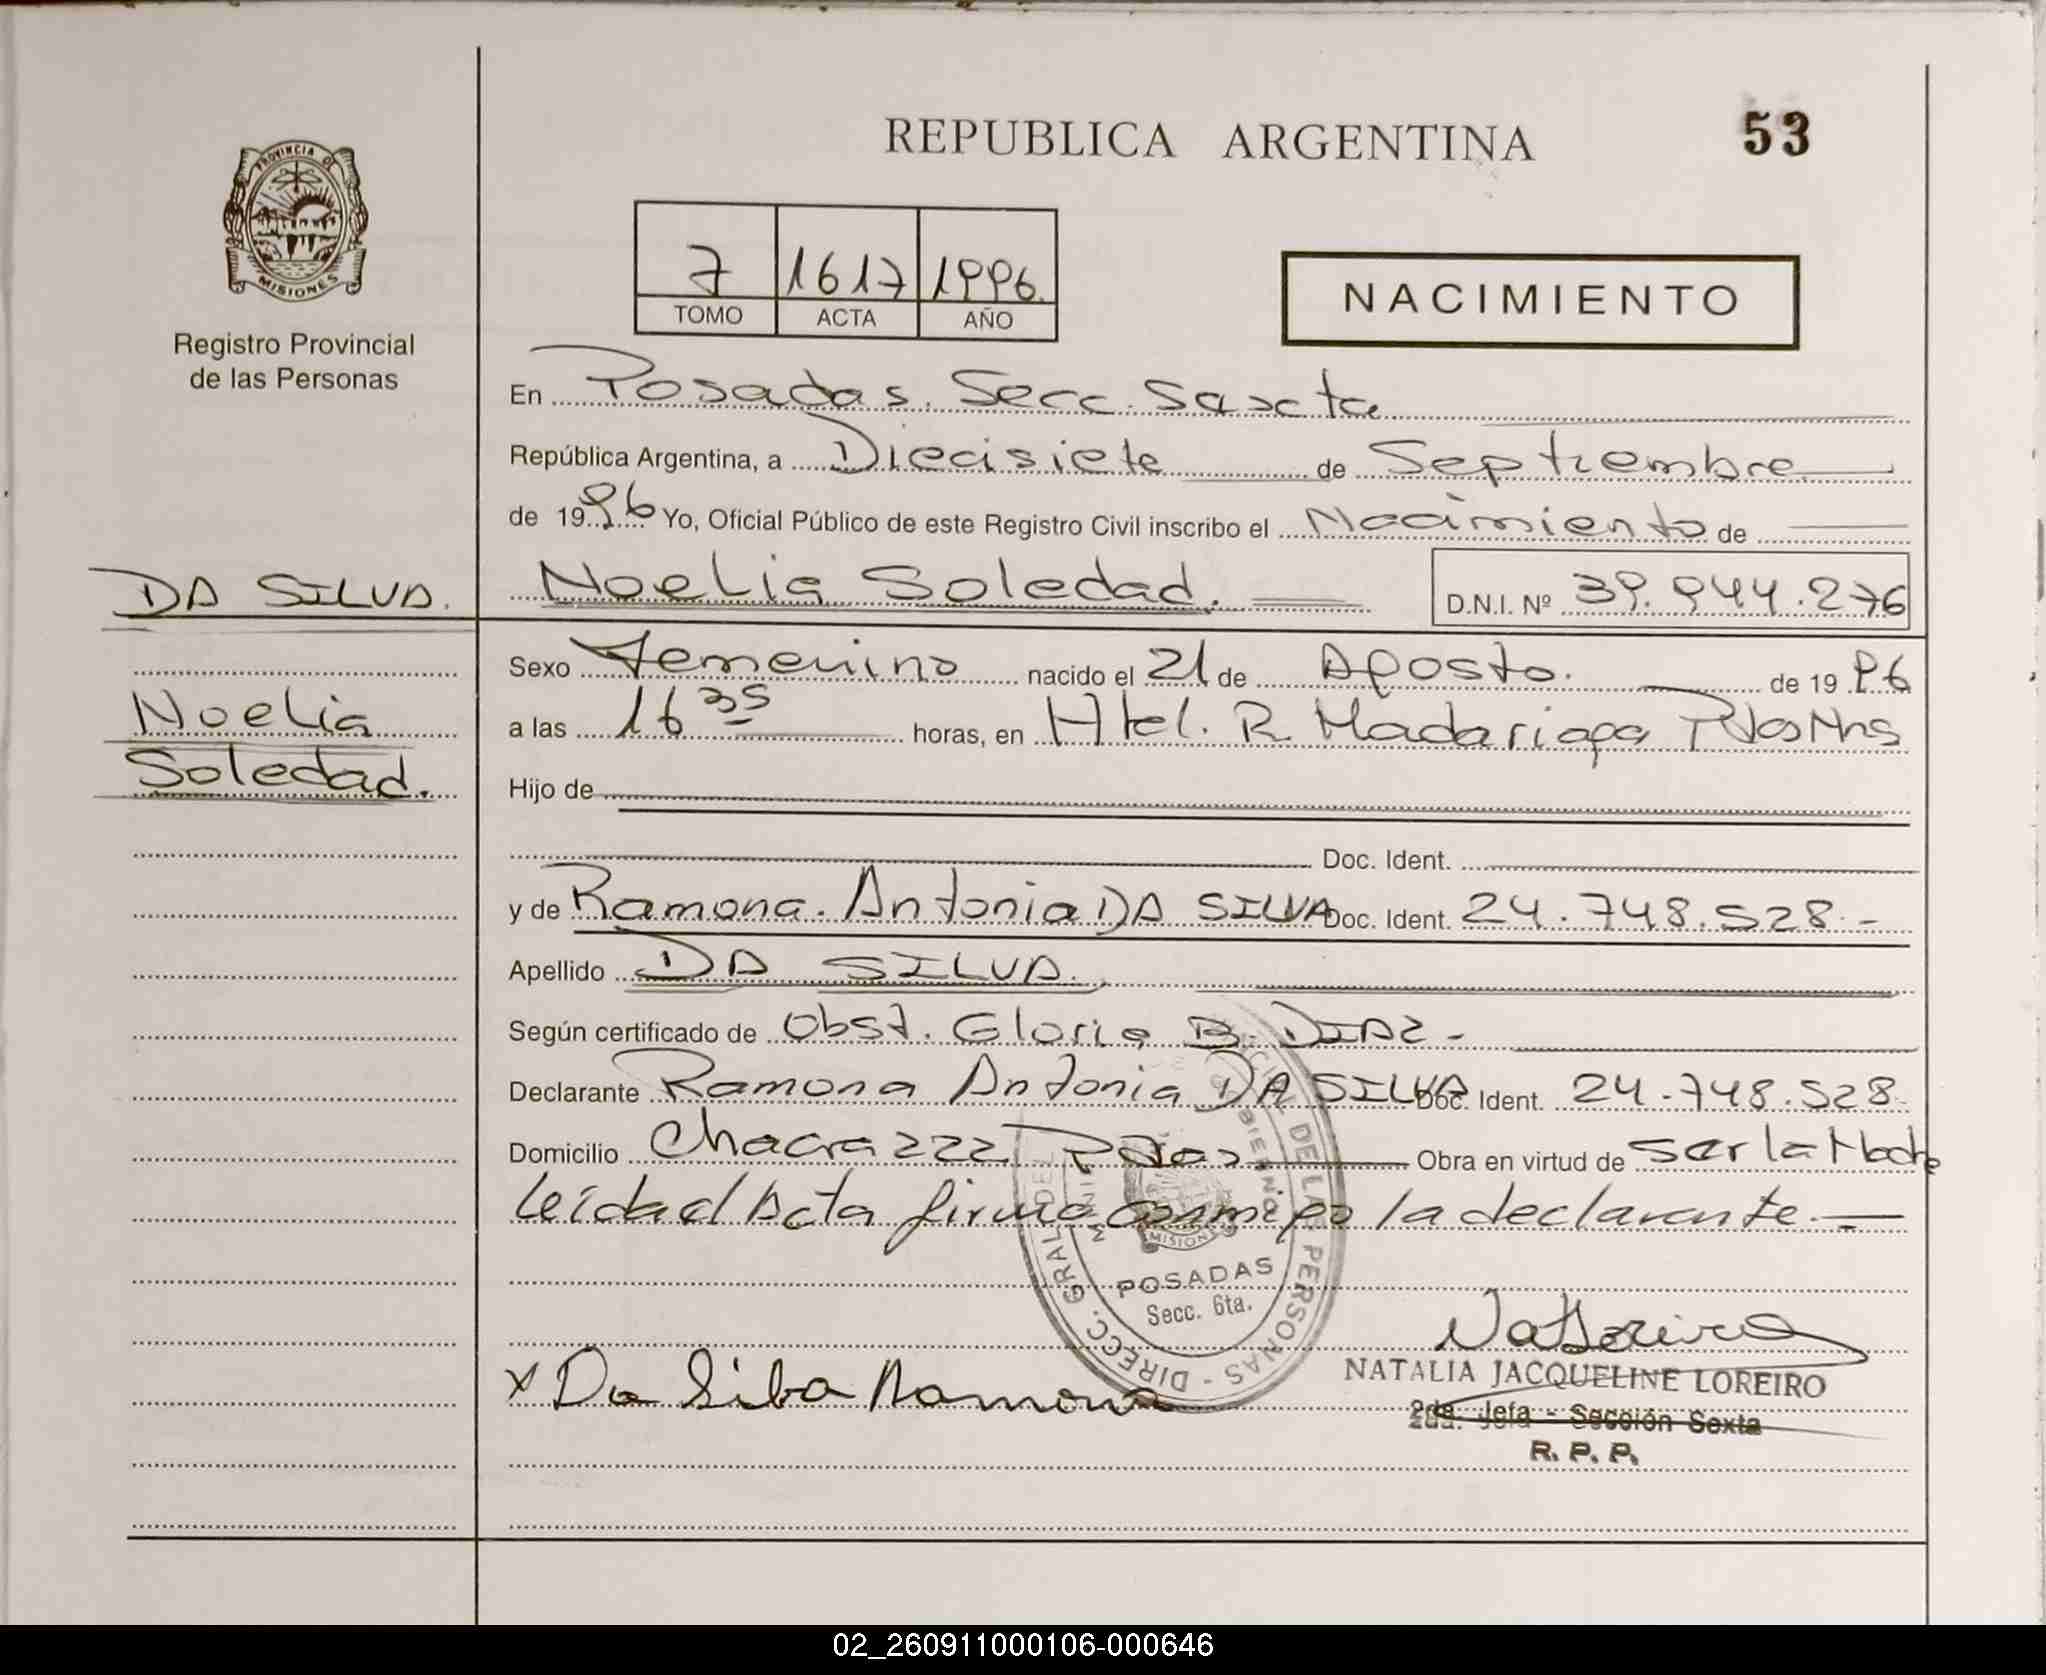 REPUBLICA ARGENTINA
53
PROVINCIA DE
MISIONES
Registro Provincial
de las Personas
7 1617 1996
TOMO ACTA AÑO
NACIMIENTO
En Posadas. Secc. Sexta
República Argentina, a Diecisiete de Septiembre
de 1996 Yo, Oficial Público de este Registro Civil inscribo el Nacimiento de
DA SILVA.
Noelia Soledad. D.N.I. Nº 39.944.276
Noelia
Soledad.
Sexo Femenino nacido el 21 de Agosto. de 1996
a las 16 35 horas, en Htel. R. Madariaga Pdas Mns
Hijo de
Doc. Ident.
y de Ramona. Antonia DA SILVA Doc. Ident. 24.748.528.-
Apellido DA SILVA.
Según certificado de Obst. Gloria B. DIAZ -
Declarante Ramona Antonia DA SILVA Doc. Ident. 24.748.528-
Domicilio Chacra 222 Pdas Obra en virtud de ser la Madre
leída el Acta firma conmigo la declarante.-
DIRECC. GRAL DEL DE LAS PERSONAS -
MISIONES
POSADAS
Secc. 6ta.
x Da Silva Ramona
NATALIA JACQUELINE LOREIRO
2da. Jefa - Sección Sexta
R. P. P.
02_260911000106-000646